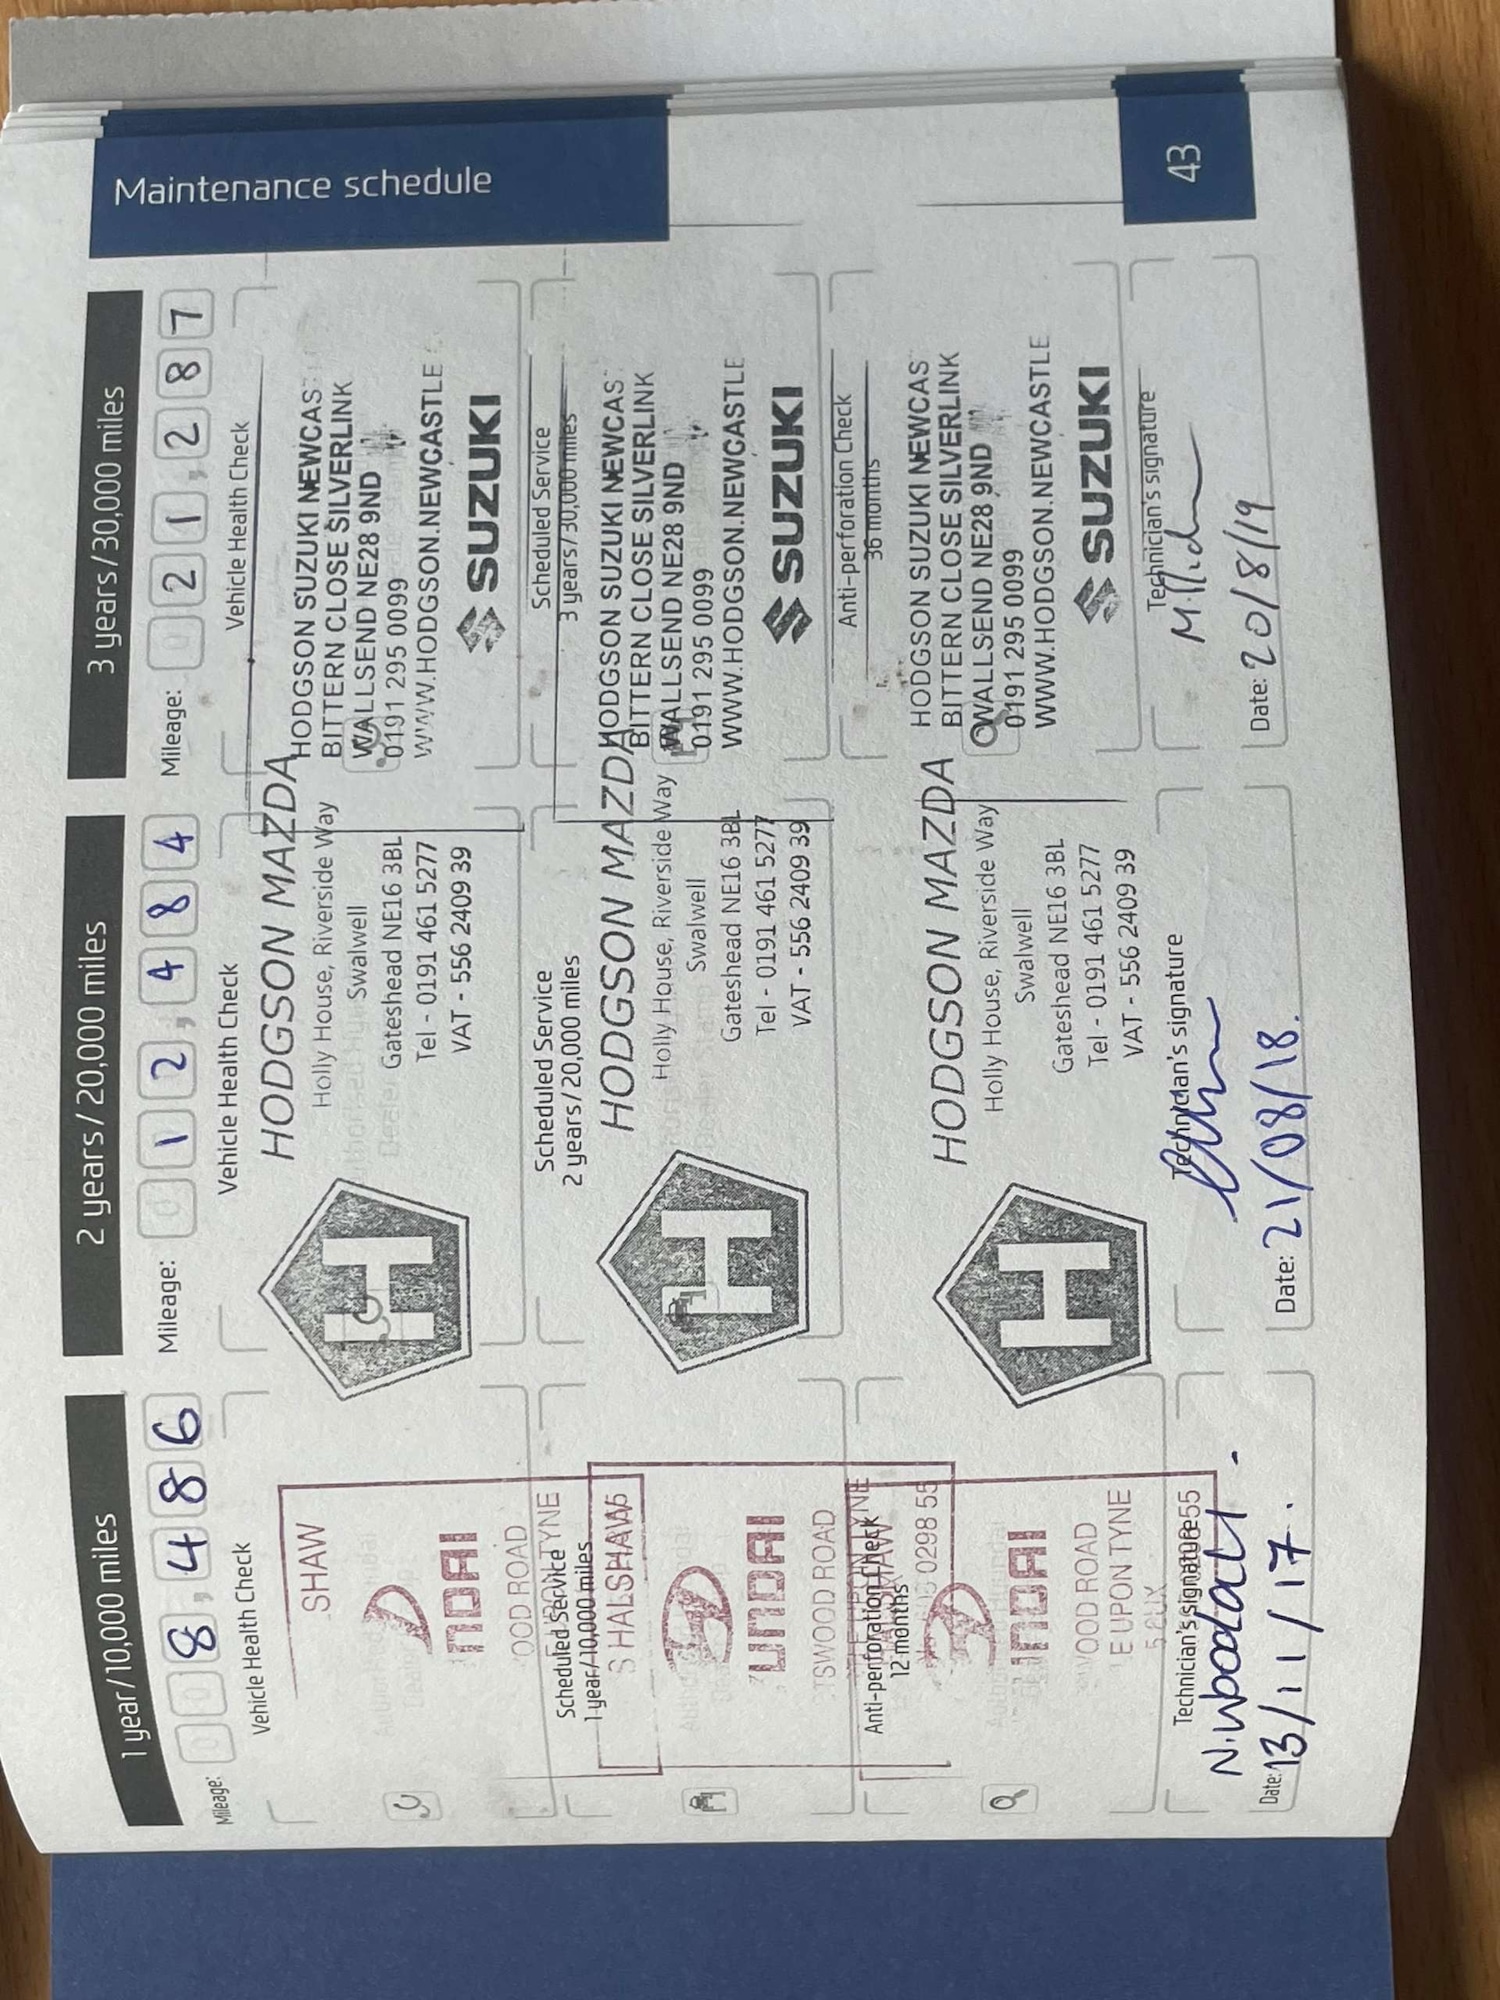 Maintenance schedule
1 year/10,000 miles
Mileage: 0 0 8,4 8 6
Vehicle Health Check
SHAW
OOD ROAD
TYNE
Scheduled Service
1 year/10,000 miles
S HALSHAW
TSWOOD ROAD
Anti-perforation Check
12 months
0298 55
WOOD ROAD
E UPON TYNE
Technician's signature
55
N.Woodall
Date: 13/11/17.
2 years/20,000 miles
Mileage: 0 1 2,4 8 4
Vehicle Health Check
HODGSON MAZDA
Holly House, Riverside Way
Swalwell
Gateshead NE16 3BL
Tel - 0191 461 5277
VAT - 556 2409 39
H
Scheduled Service
2 years/20,000 miles
HODGSON MAZDA
Holly House, Riverside Way
Swalwell
Gateshead NE16 3BL
Tel - 0191 461 5277
VAT - 556 2409 39
H
HODGSON MAZDA
Holly House, Riverside Way
Swalwell
Gateshead NE16 3BL
Tel - 0191 461 5277
VAT - 556 2409 39
H
Technician's signature
Date: 21/08/18.
3 years/30,000 miles
Mileage: 0 2 1,2 8 7
Vehicle Health Check
HODGSON SUZUKI NEWCAS
BITTERN CLOSE SILVERLINK
WALLSEND NE28 9ND
0191 295 0099
WWW.HODGSON.NEWCASTLE
SUZUKI
Scheduled Service
3 years/30,000 miles
HODGSON SUZUKI NEWCAS
BITTERN CLOSE SILVERLINK
WALLSEND NE28 9ND
0191 295 0099
WWW.HODGSON.NEWCASTLE
SUZUKI
Anti-perforation Check
36 months
HODGSON SUZUKI NEWCAS
BITTERN CLOSE SILVERLINK
WALLSEND NE28 9ND
0191 295 0099
WWW.HODGSON.NEWCASTLE
SUZUKI
Technician's signature
Date: 20/8/19
43